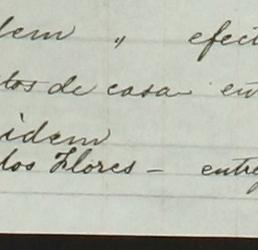 dem " efect
tos de casa en
idem
los Flores - entre